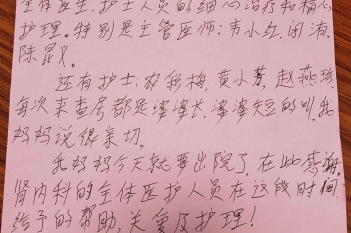 全体医生、护士人员的细心治疗和精心
护理。特别是主管医师：韦小红、闭洧、
陈昆义。
还有护士：农彩梅，黄小芳，赵燕玲，
每次来查房都是婆婆长、婆婆短的叫，我
妈妈说很亲切。
我妈妈今天就要出院了，在此感谢
肾内科的全体医护人员在这段时间
给予的帮助、关爱及护理！